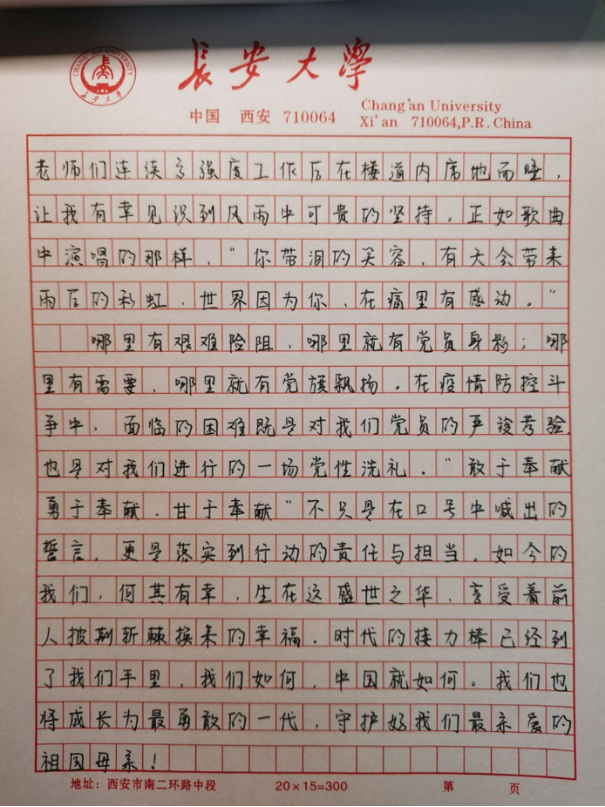 CHANG'AN UNIVERSITY
长安大学
长安大学
中国 西安 710064
Chang'an University
Xi'an 710064,P.R. China
老师们连续高强度工作后在楼道内席地而睡，
让我有幸见识到风雨中可贵的坚持。正如歌曲
中演唱的那样，“你带泪的笑容，有天会带来
雨后的彩虹，世界因为你，在痛里有感动。”
哪里有艰难险阻，哪里就有党员身影；哪
里有需要，哪里就有党旗飘扬。在疫情防控斗
争中，面临的困难既是对我们党员的严峻考验
也是对我们进行的一场党性洗礼。“敢于奉献
勇于奉献，甘于奉献”不只是在口号中喊出的
誓言，更是落实到行动的责任与担当。如今的
我们，何其有幸，生在这盛世之华，享受着前
人披荆斩棘换来的幸福。时代的接力棒已经到
了我们手里，我们如何，中国就如何。我们也
将成长为最勇敢的一代，守护好我们最亲爱的
祖国母亲！
地址：西安市南二环路中段 20×15=300 第 页